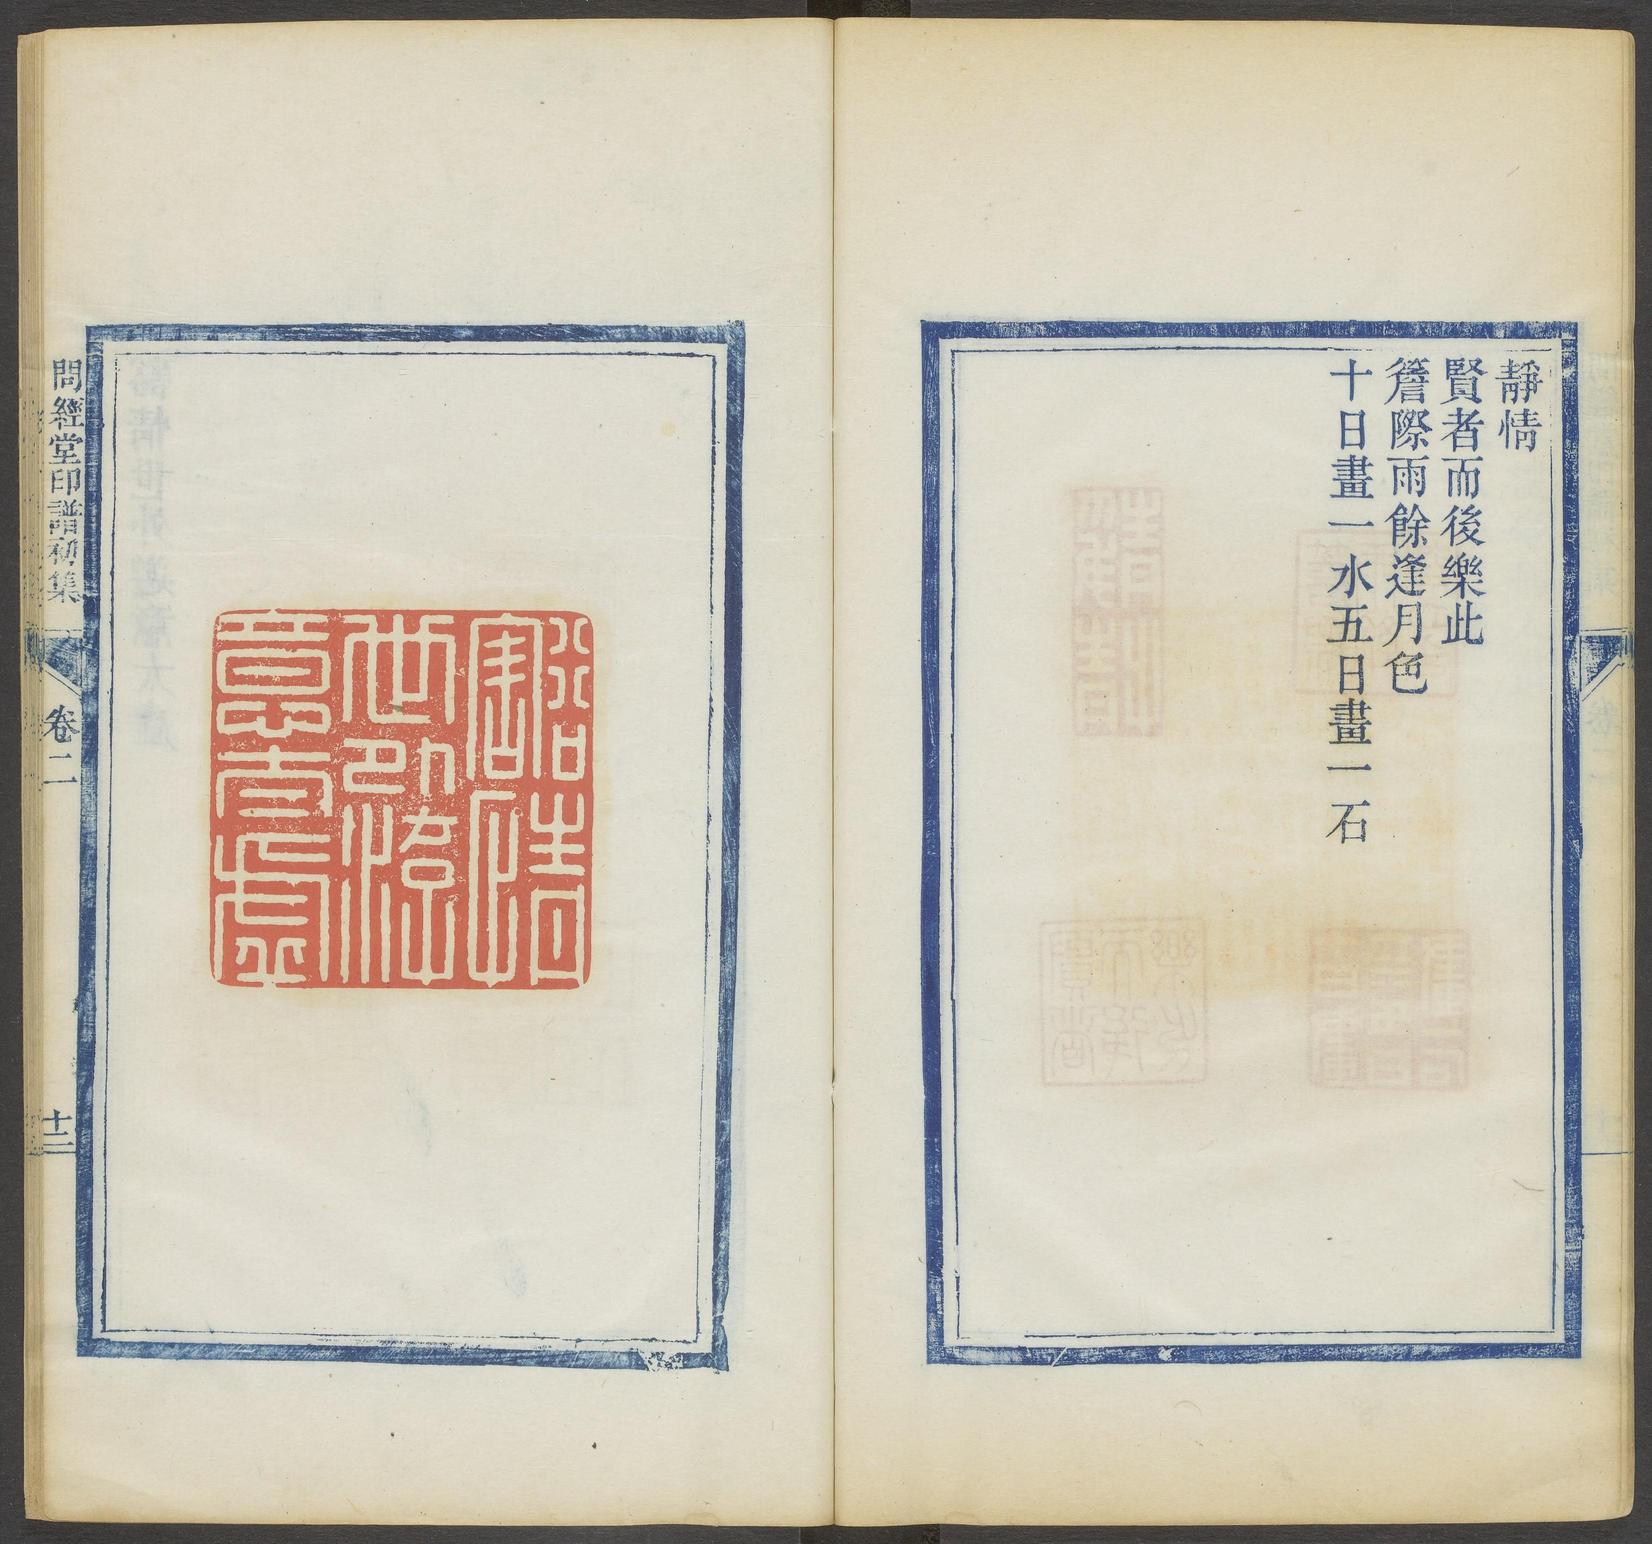 靜情
賢者而後樂此
簷際雨餘逢月色
十日畫一水五日畫一石
豁情
世外
意太虛
問經堂印譜初集
卷二
十二